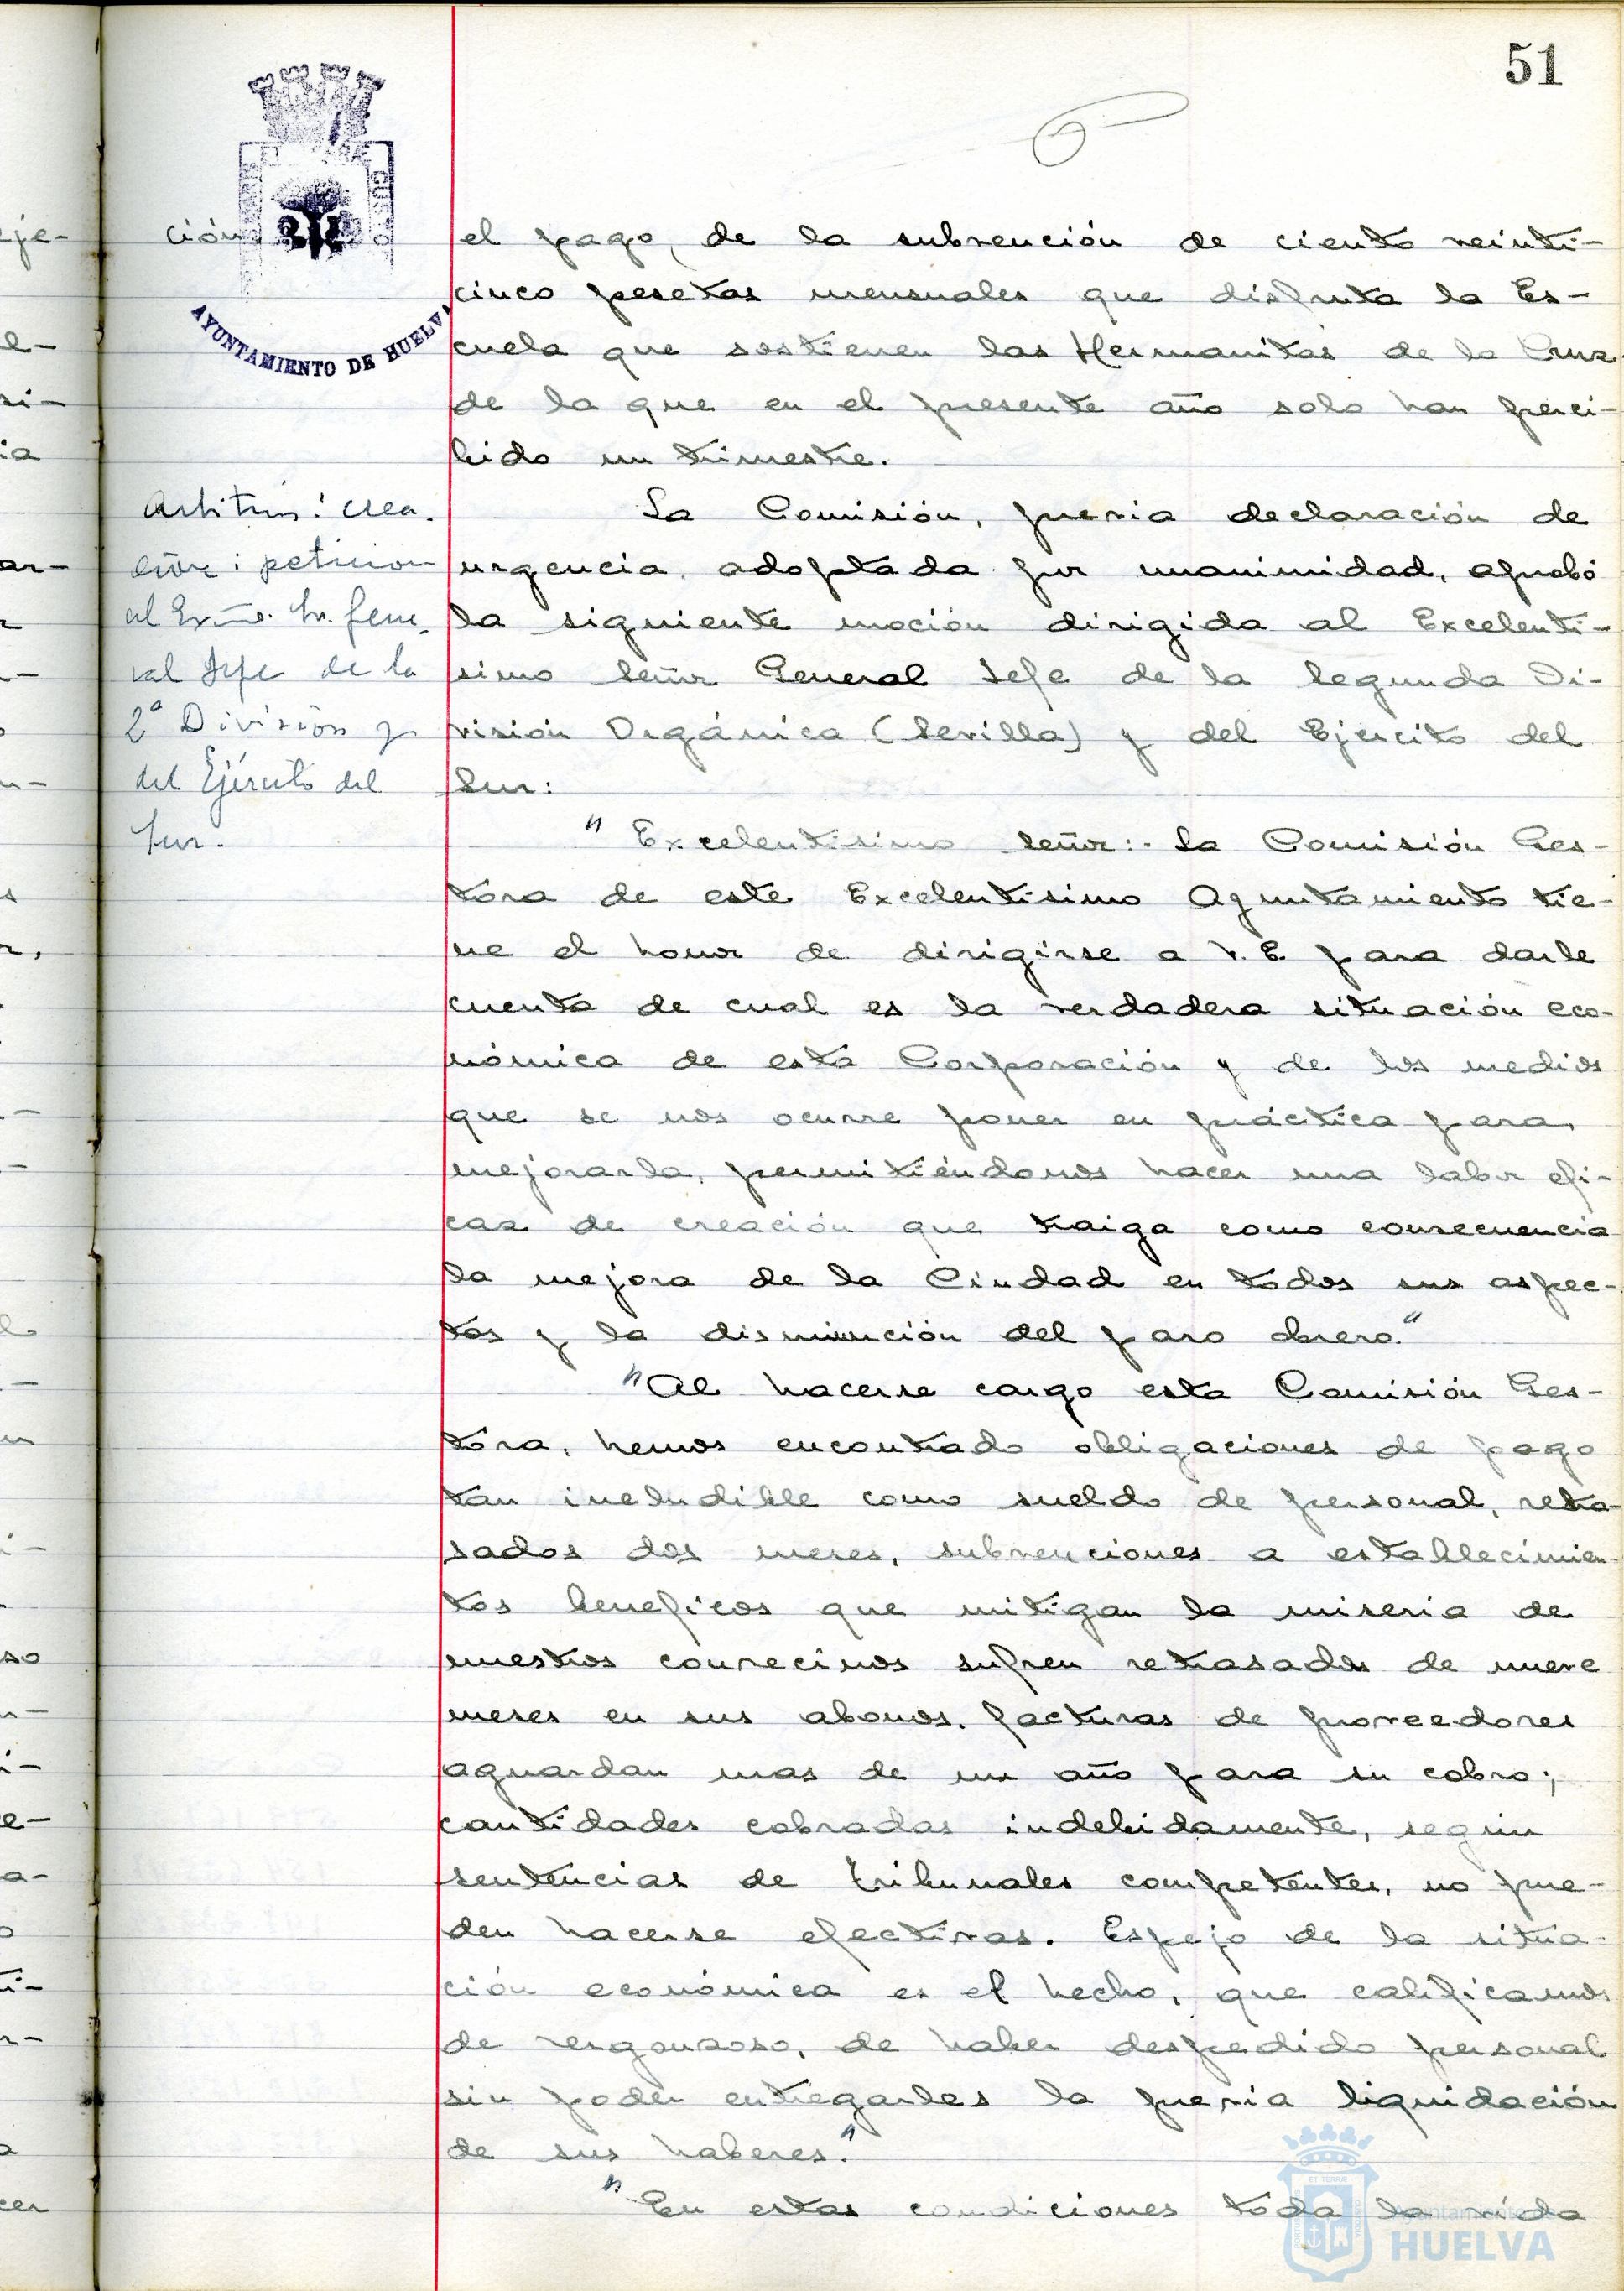 51
ción
AYUNTAMIENTO DE HUELVA
el pago, de la subvención de ciento veinti-
cinco pesetas mensuales que disfruta la Es-
cuela que sostienen las Hermanitas de la Cruz
de la que en el presente año solo han perci-
bido un trimestre.
Arbitrios: crea-
ción: peticion
al Exmo. Sr. Gene-
ral Jefe de la
2ª División y
del Ejército del
Sur.
La Comisión, previa declaración de
urgencia, adoptada por unanimidad, aprobó
la siguiente moción dirigida al Excelentí-
simo Señor General Jefe de la Segunda Di-
visión Orgánica (Sevilla) y del Ejército del
Sur:
"Excelentísimo Señor:- La Comisión Ges-
tora de este Excelentísimo Ayuntamiento tie-
ne el honor de dirigirse a V. E para darle
cuenta de cual es la verdadera situación eco-
nómica de esta Corporación y de los medios
que se nos ocurre poner en práctica para
mejorarla, permitiéndonos hacer una labor efi-
caz de creación que traiga como consecuencia
la mejora de la Ciudad en todos sus aspec-
tos y la disminución del paro obrero."
"Al hacerse cargo esta Comisión Ges-
tora, hemos encontrado obligaciones de pago
tan ineludible como sueldo de personal, retra-
sados dos meses, subvenciones a establecimien-
tos beneficos que mitigan la miseria de
nuestros convecinos sufren retrasados de nueve
meses en sus abonos, facturas de proveedores
aguardan mas de un año para su cobro;
cantidades cobradas indebidamente, según
sentencias de tribunales competentes, no pue-
den hacerse efectivas. Espejo de la situa-
ción económica es el hecho, que calificamos
de vergonzoso, de haber despedido personal
sin poder entregarles la previa liquidación
de sus haberes."
"En estas condiciones toda la vida
Ayuntamiento
HUELVA